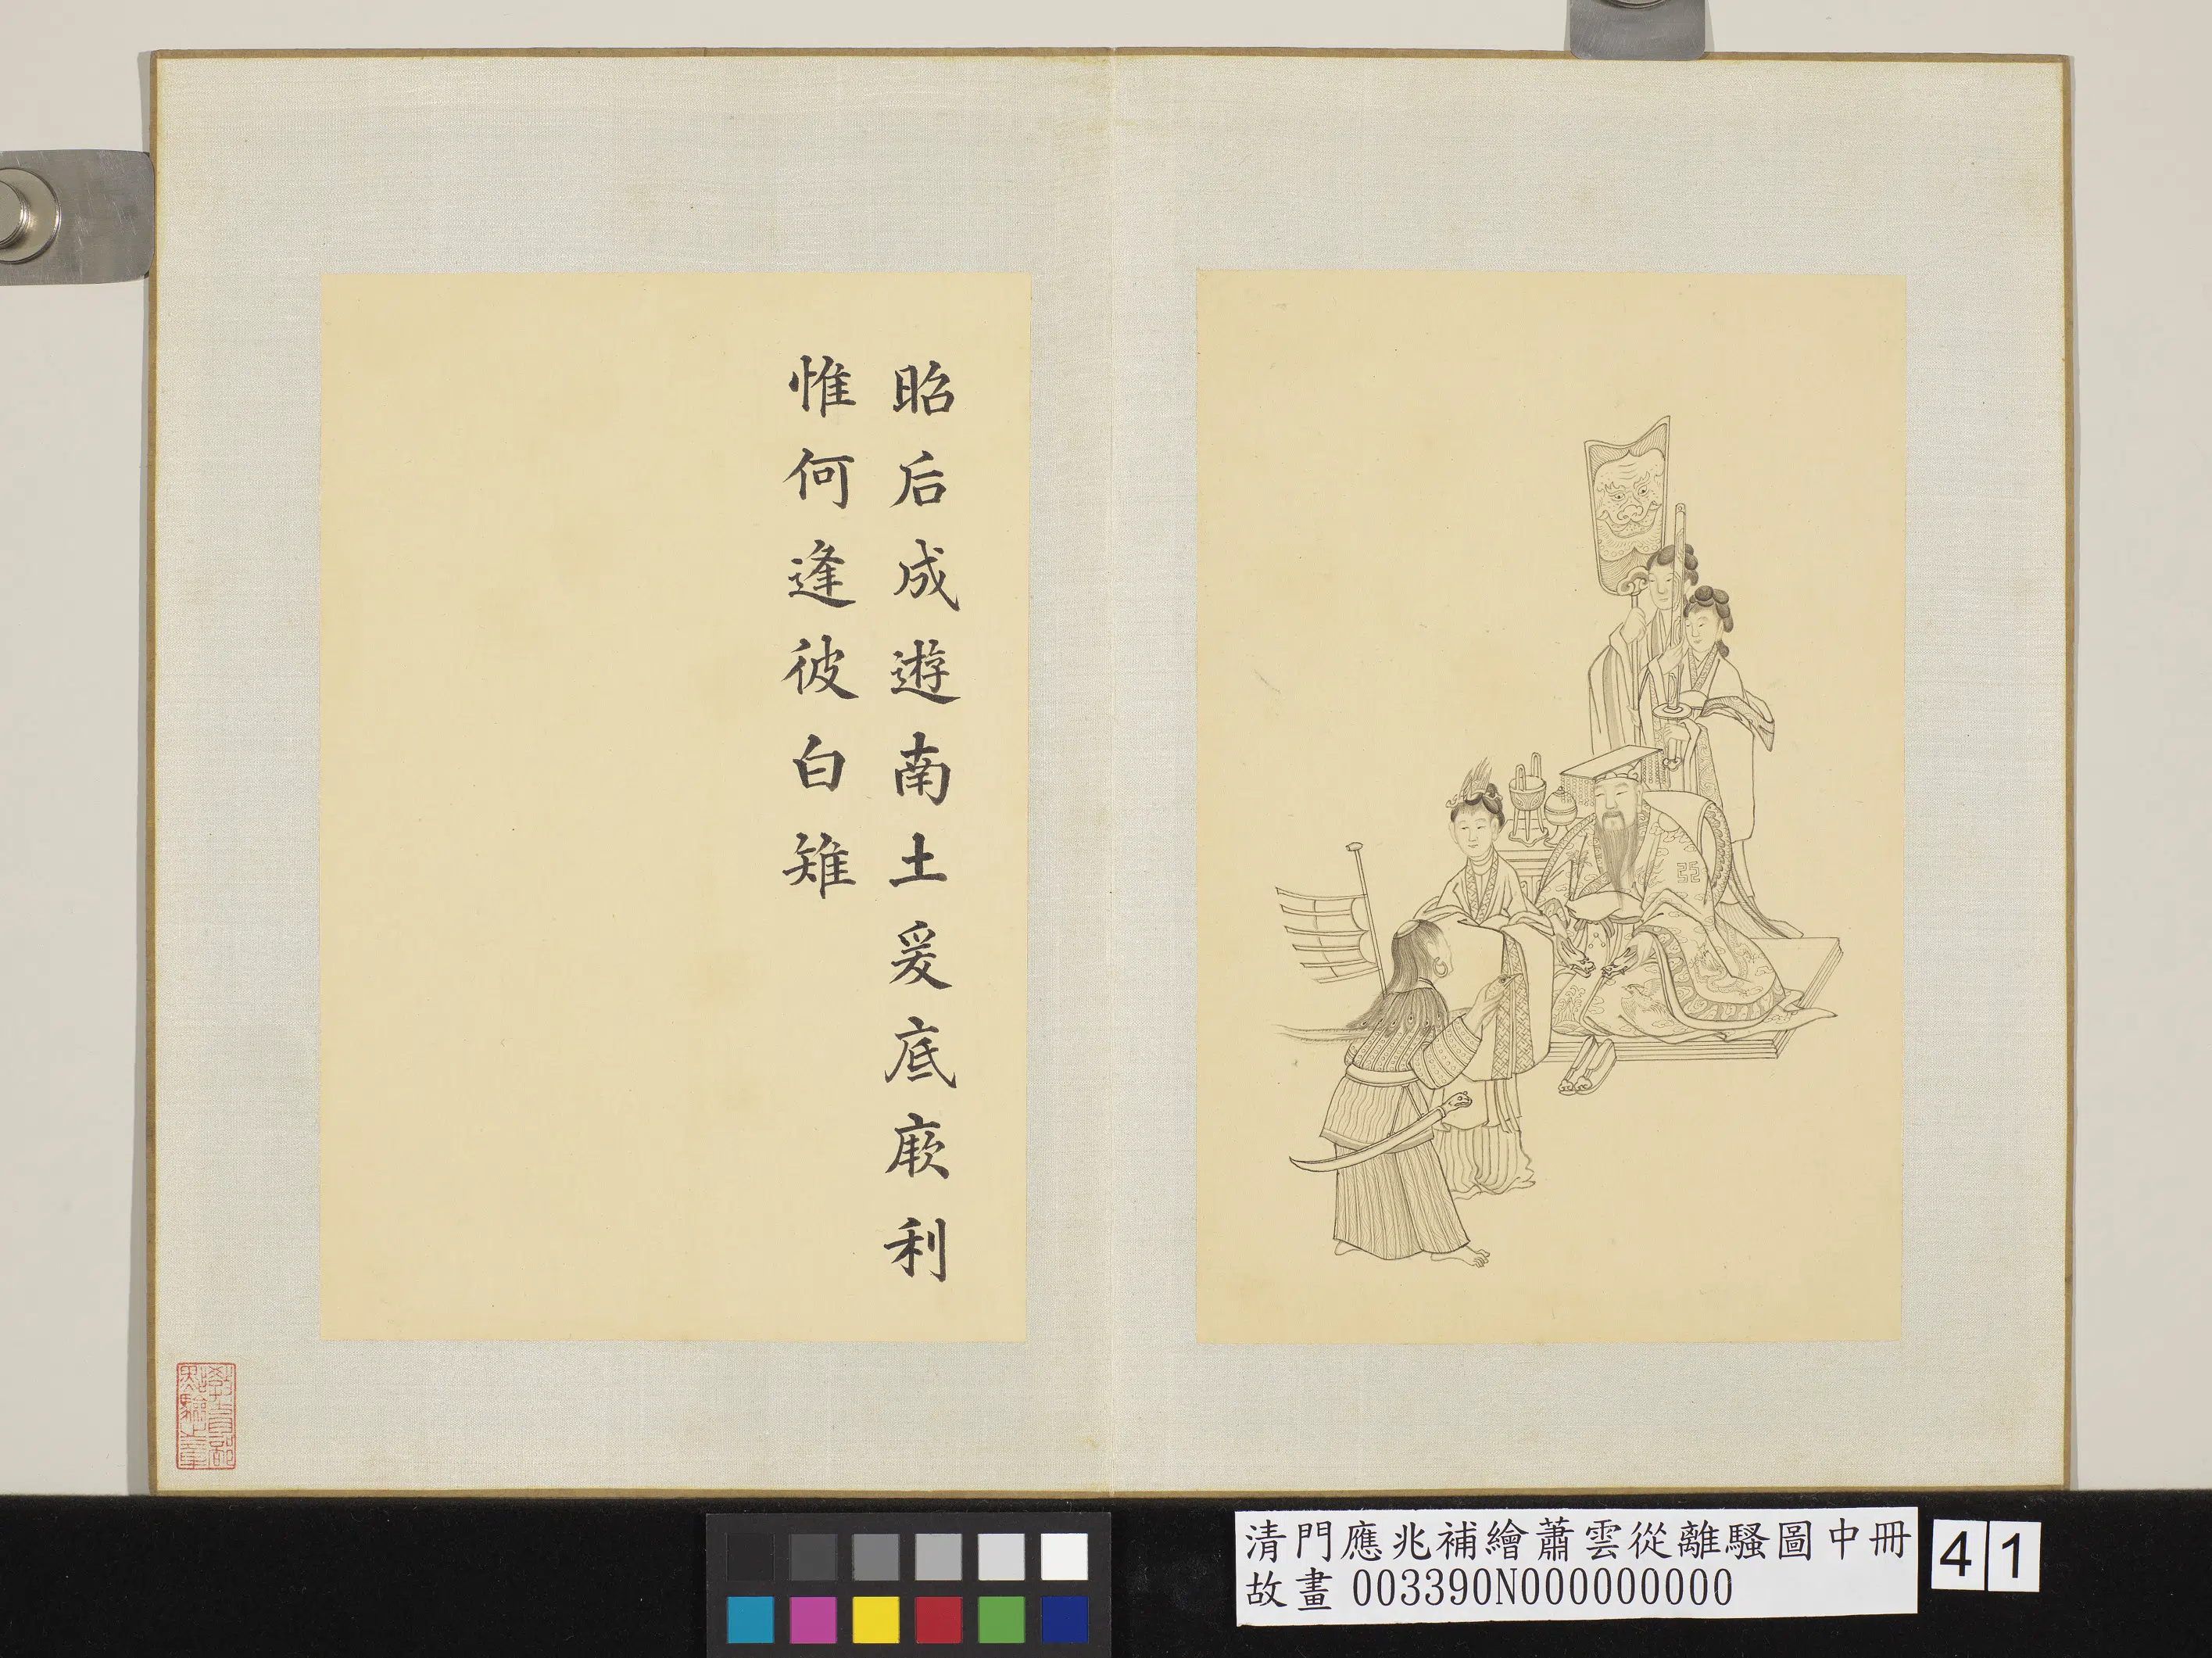 昭后成遊南土爰底厥利
惟何逢彼白雉
教育部
點驗之章
清門應兆補繪蕭雲從離騷圖中冊
故畫 003390N000000000
41